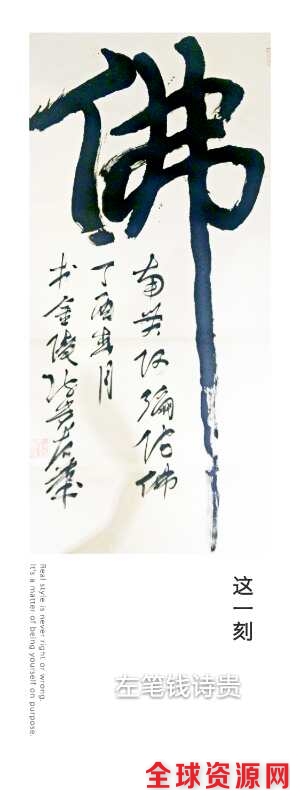 佛
南无阿弥陀佛
丁酉年月
书金陵
Real style is never right or wrong.
It's a matter of being yourself on purpose.
这一刻
左笔钱诗贵
全球资源网